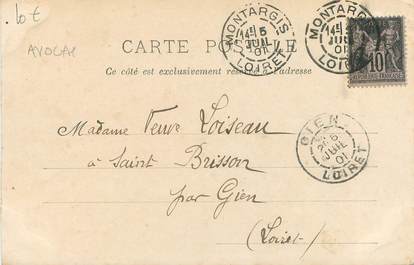 lot
AVOCAT
CARTE POSTALE
Ce côté est exclusivement réservé à l'adresse
MONTARGIS
5
JUIL
01
LOIRET
MONTARGIS
01
LOIRET
10
REPUBLIQUE FRANÇAISE
GIEN
5
JUIL
01
LOIRET
Madame Veuve Loiseau
à Saint Brisson
par Gien
(Loiret)